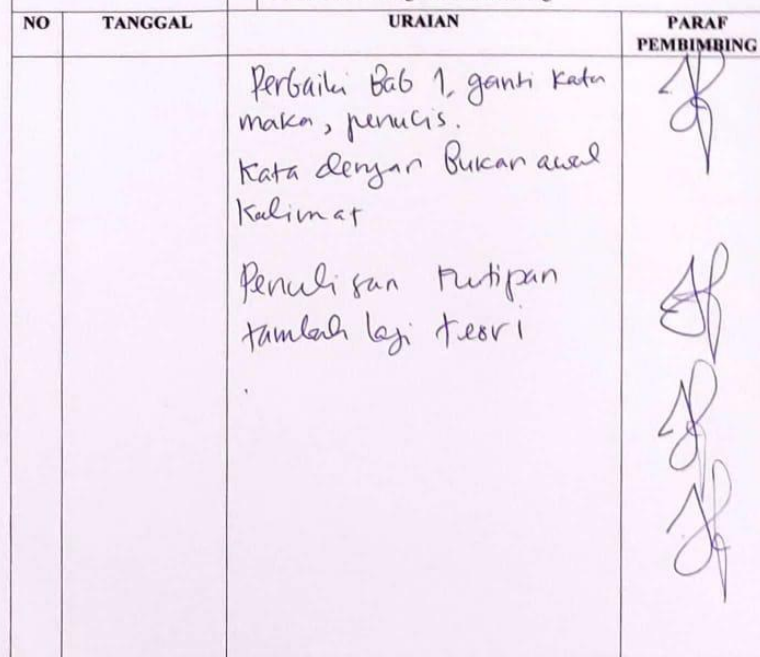 NO TANGGAL URAIAN PARAF
PEMBIMBING
Perbaiki Bab 1, ganti kata
maka, penulis.
Kata dengan Bukan awal
Kalimat
Penulisan kutipan
tambah lagi teori